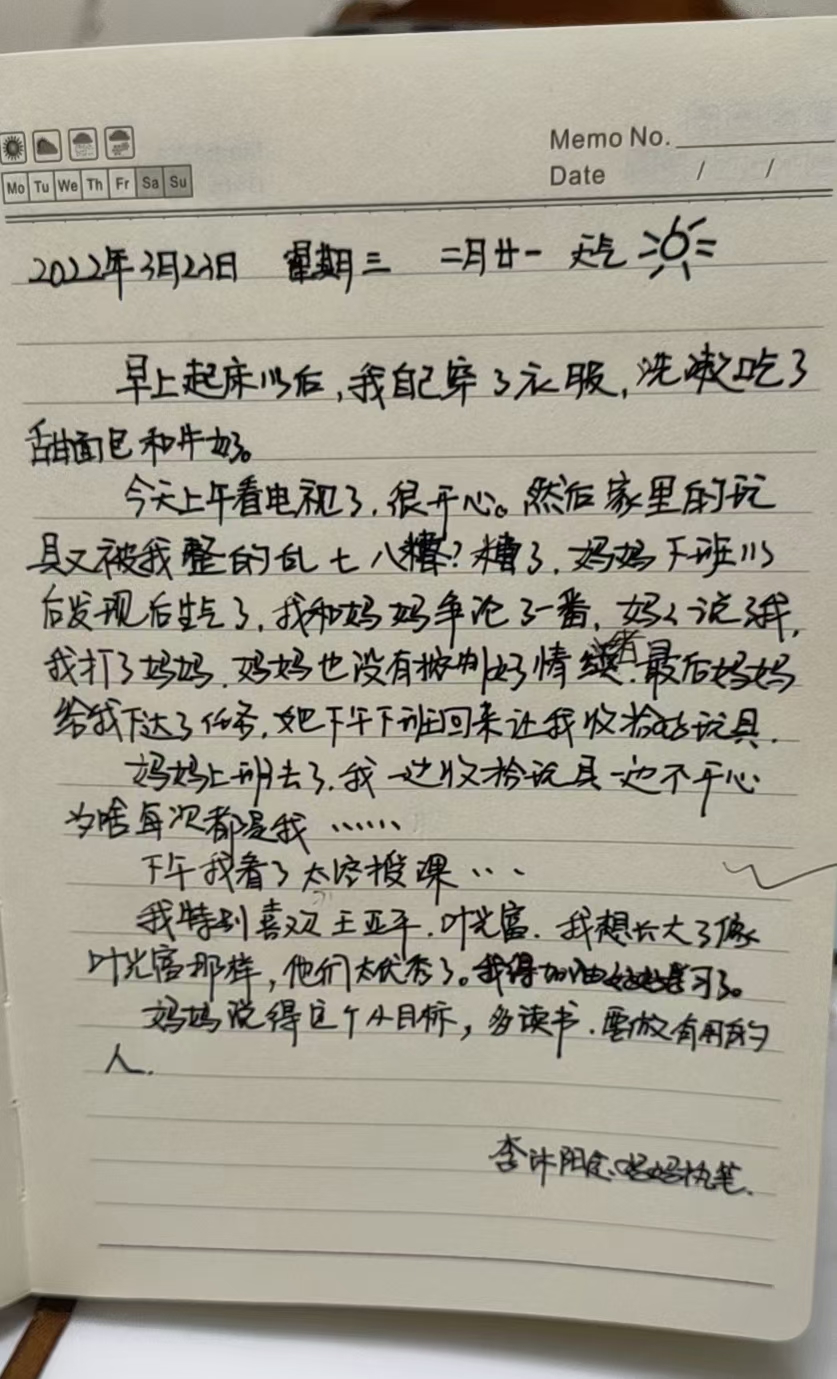 Memo No.
Mo Tu We Th Fr Sa Su
Date / /
2022年3月23日 星期三 二月廿一 天气
早上起床以后,我自己穿了衣服,洗漱吃了
甜面包和牛奶。
今天上午看电视了,很开心。然后家里的玩
具又被我整的乱七八糟?糟了,妈妈下班以
后发现后生气了,我和妈妈争论了一番,妈妈说了我,
我打了妈妈,妈妈也没有控制好情绪.最后妈妈
给我下达了任务,她下午下班回来让我收拾好玩具.
妈妈上班去了,我一边收拾玩具一边不开心
为啥每次都是我……
下午我看了太空授课…
我特别喜欢王亚平.叶光富.我想长大了像
叶光富那样,他们太优秀了。我得加油好好学习了。
妈妈说得定个小目标,多读书.要做有用的
人.
李沐阳念.妈妈执笔.